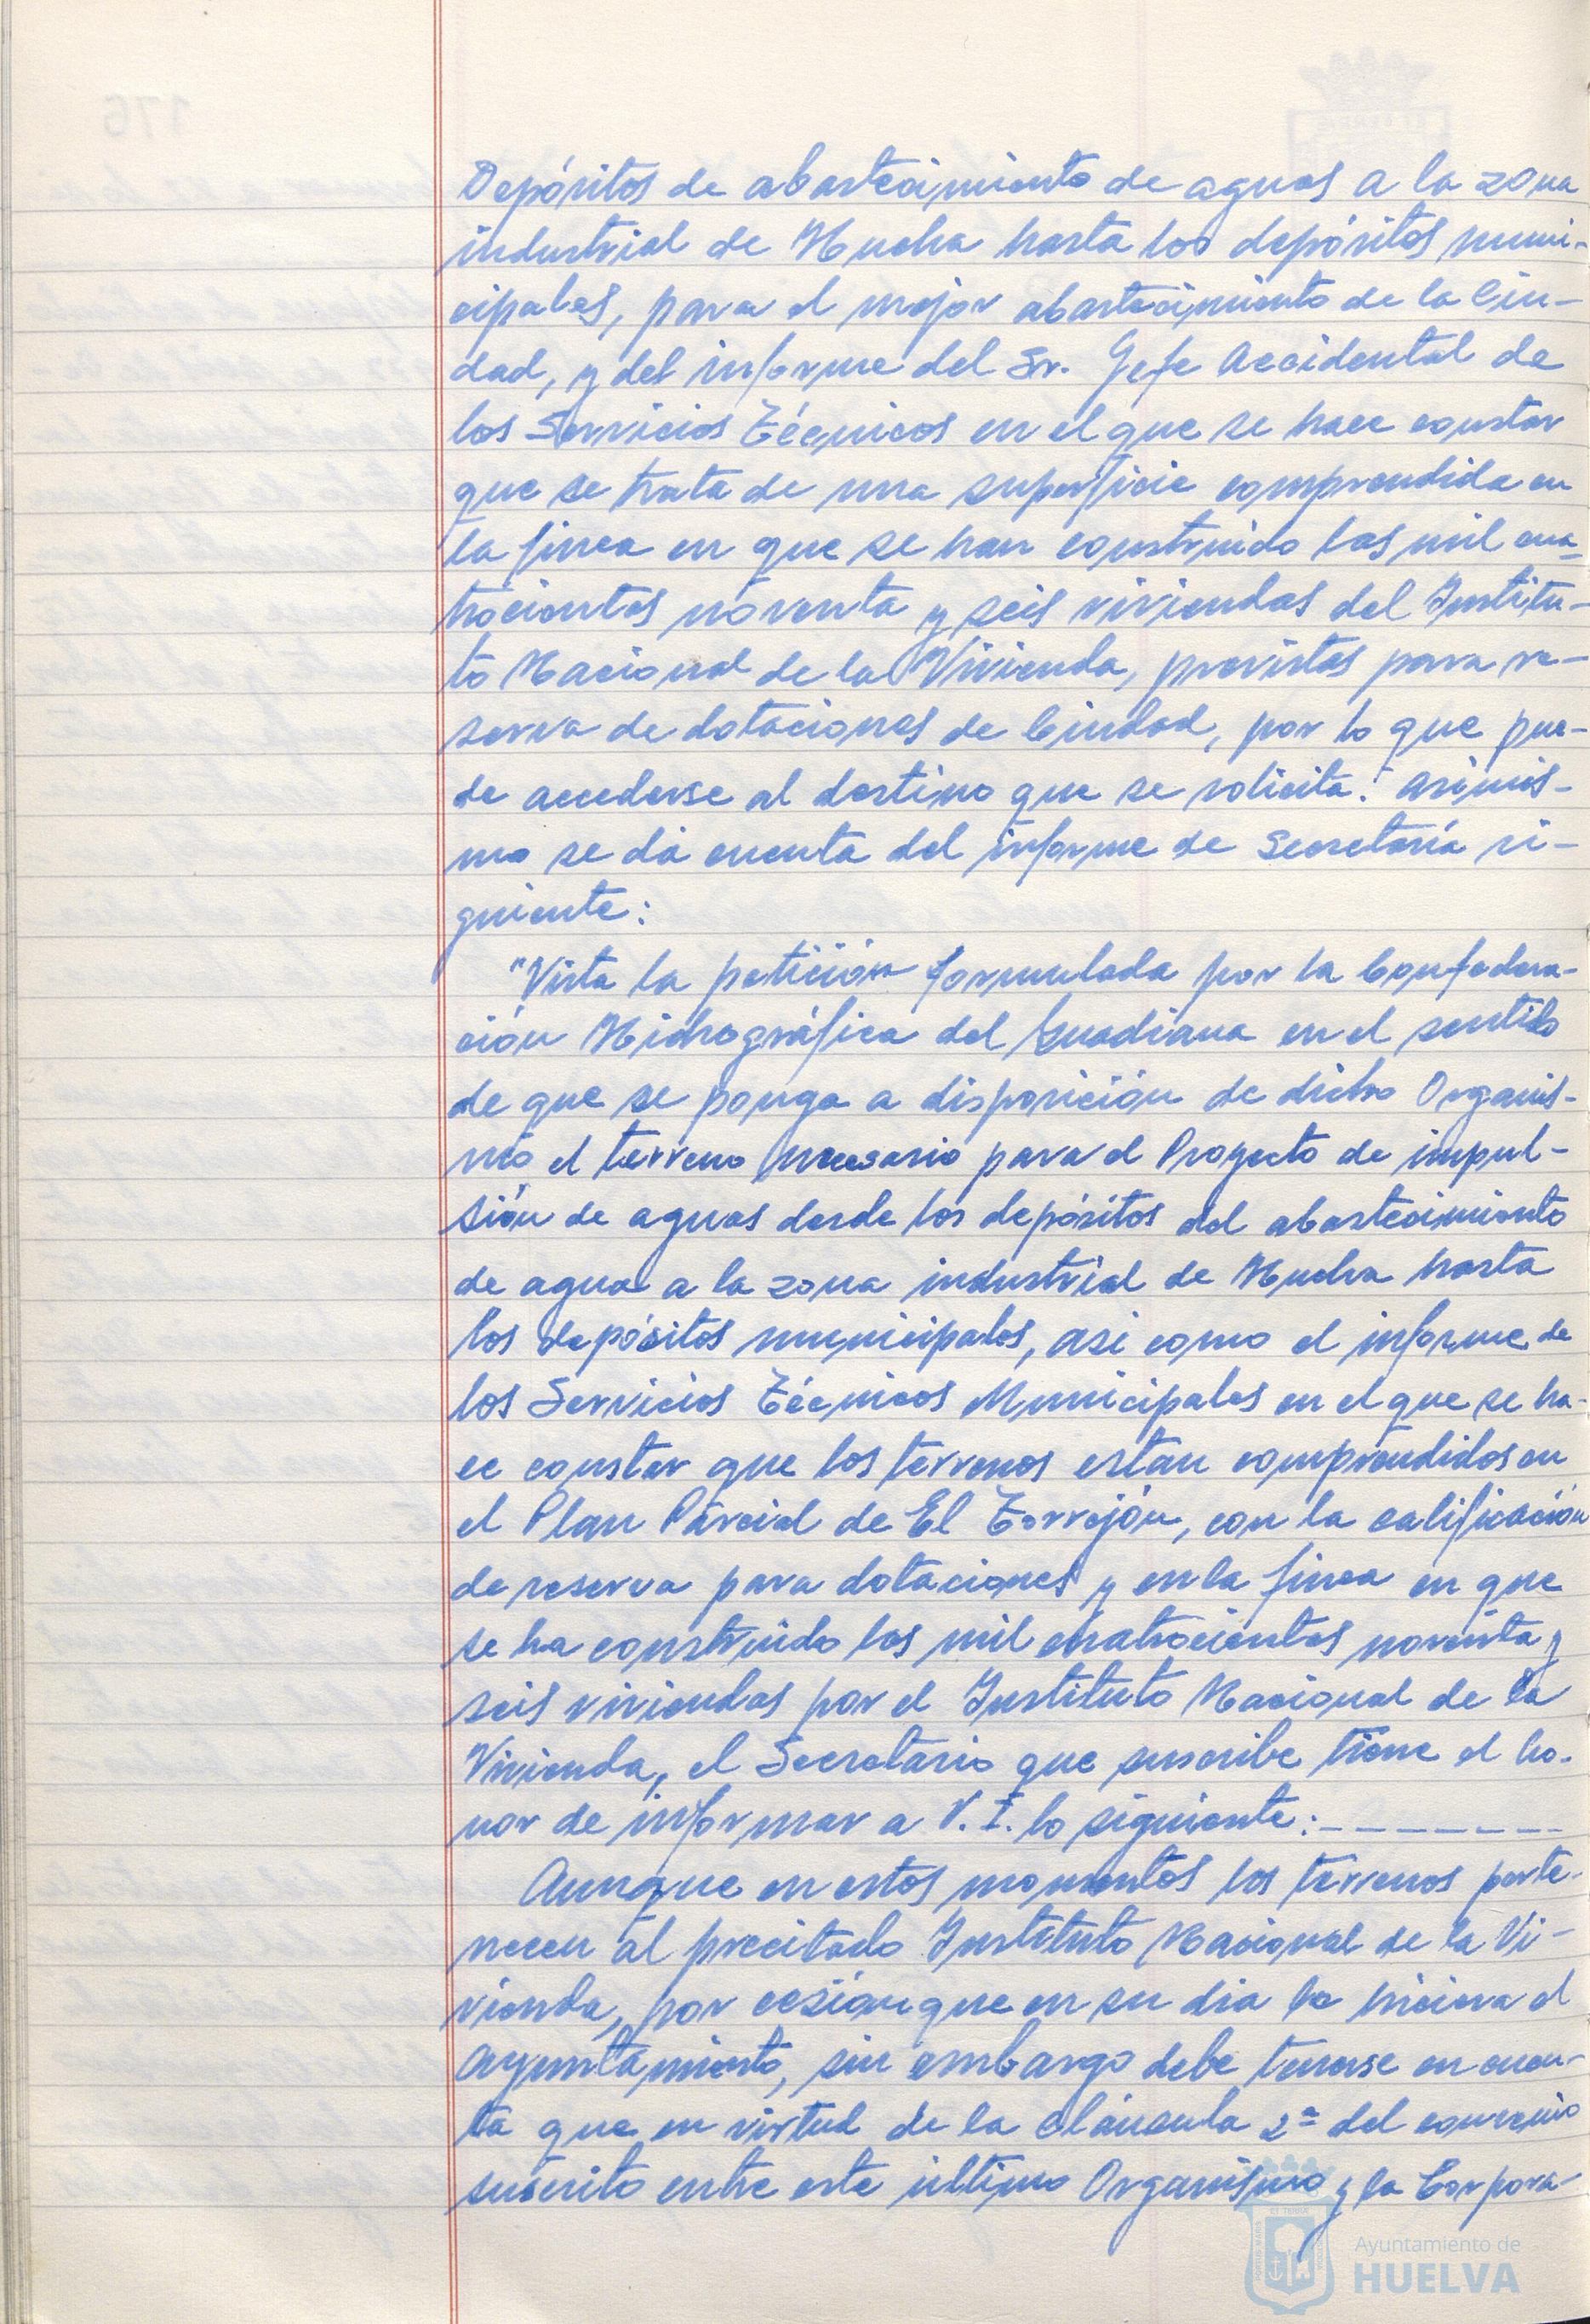 Depósitos de abastecimiento de aguas a la zona
industrial de Huelva hasta los depósitos muni-
cipales, para el mejor abastecimiento de la Ciu-
dad, y del informe del Sr. Jefe Accidental de
los Servicios Técnicos en el que se hace constar
que se trata de una superficie comprendida en
la finca en que se han construido las mil cua-
trocientas noventa y seis viviendas del Institu-
to Nacional de la Vivienda, previstas para re-
serva de dotaciones de Ciudad, por lo que pue-
de accederse al destino que se solicita. Asimis-
mo se da cuenta del informe de Secretaría si-
guiente:
"Vista la petición formulada por la Confedera-
ción Hidrográfica del Guadiana en el sentido
de que se ponga a disposición de dicho Organis-
mo el terreno necesario para el Proyecto de impul-
sión de aguas desde los depósitos del abastecimiento
de agua a la zona industrial de Huelva hasta
los depósitos municipales, asi como el informe de
los Servicios Técnicos Municipales en el que se ha-
ce constar que los terrenos estan comprendidos en
el Plan Parcial de El Torrejón, con la calificación
de reserva para dotaciones y en la finca en que
se ha construido las mil cuatrocientas noventa y
seis viviendas por el Instituto Nacional de la
Vivienda, el Secretario que suscribe tiene el ho-
nor de informar a V. I. lo siguiente:-------
Aunque en estos momentos los terrenos perte-
necen al precitado Instituto Nacional de la Vi-
vienda, por cesión que en su dia le hiciera el
Ayuntamiento, sin embargo debe tenerse en cuen-
ta que en virtud de la cláusula 2ª del convenio
suscrito entre este último Organismo y la Corpora-
Ayuntamiento de
HUELVA
176